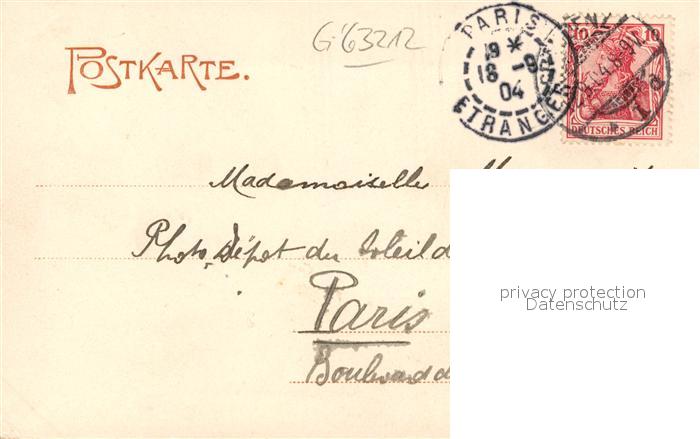 G.63212
POSTKARTE.
PARIS
19 *
18 -9
04
ETRANGER
10 10
DEUTSCHES REICH
Mademoiselle
Photo, Dépôt du Soleil d
Paris
Boulevard d
privacy protection
Datenschutz